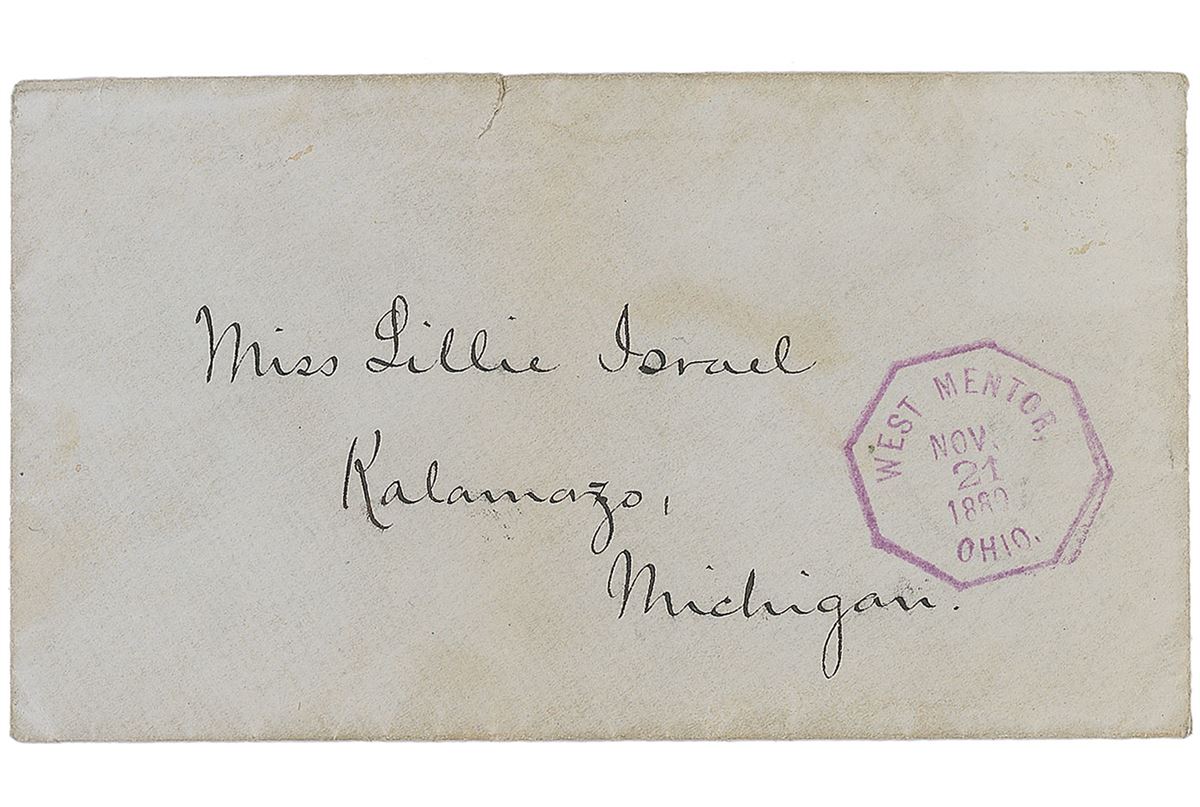 Miss Lillie Israel
Kalamazo,
Michigan.
WEST MENTOR,
NOV.
21
1880
OHIO.